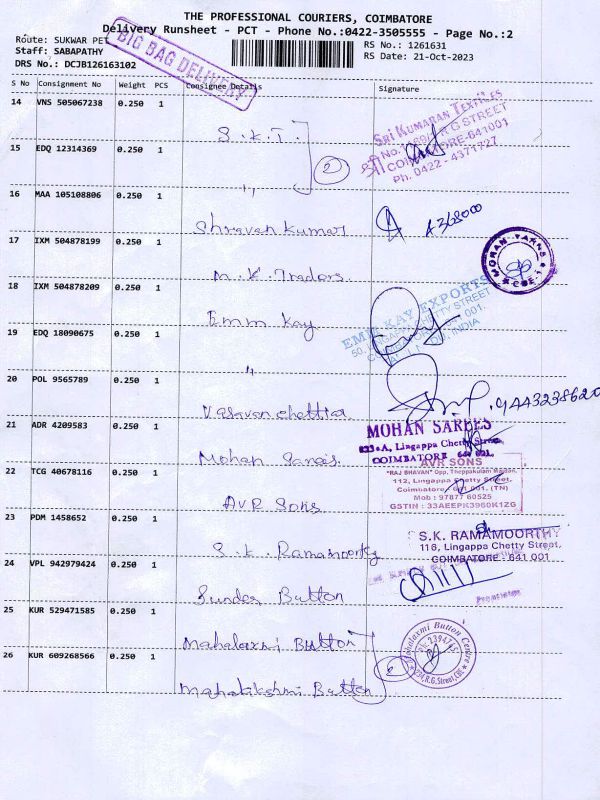 THE PROFESSIONAL COURIERS, COIMBATORE
Delivery Runsheet - PCT - Phone No.:0422-3505555 - Page No.:2
Route: SUKWAR PET
Staff: SABAPATHY
DRS No.: DCJB126163102
BIG BAG DELIVERY
RS No.: 1261631
RS Date: 21-Oct-2023
S No Consignment No Weight PCS Consignee Details Signature
14 VNS 505067238 0.250 1
S.K.T.
SRI KUMARAN TEXTILES
R.G STREET
COIMBATORE-641001
Ph. 0422 - 4371727
15 EDQ 12314369 0.250 1
2
"
16 MAA 105108806 0.250 1
Shravan Kumar
17 IXM 504878199 0.250 1
M.K. Traders
18 IXM 504878209 0.250 1
Emm Kay
EMM KAY EXPORTS
50, LINGAPPA CHETTY STREET
COIMBATORE - 641 001.
INDIA
19 EDQ 18090675 0.250 1
"
20 POL 9565789 0.250 1
9443238620
21 ADR 4209583 0.250 1
Mohan Sarees
MOHAN SAREES
Lingappa Chetty Street,
COIMBATORE 641 001.
22 TCG 40678116 0.250 1
AVR Sons
AVR SONS
"RAJ BHAVAN" Opp, Theppakulam Maidan,
112, Lingappa Chetty Street,
Coimbatore - 641 001, (TN)
Mob : 97877 60525
GSTIN : 33AEEPK3960K1ZG
23 PDM 1458652 0.250 1
S.K. Ramamoorthy
S.K. RAMAMOORTHY
116, Lingappa Chetty Street,
COIMBATORE - 641 001
24 VPL 942979424 0.250 1
Sunder Button
Proprietor
25 KUR 529471585 0.250 1
Mahalaxmi Button
Mahalaxmi Button Centre
Ph: 2394715
R.G.Street, CBE
26 KUR 609268566 0.250 1
2
Mahalakshmi Button